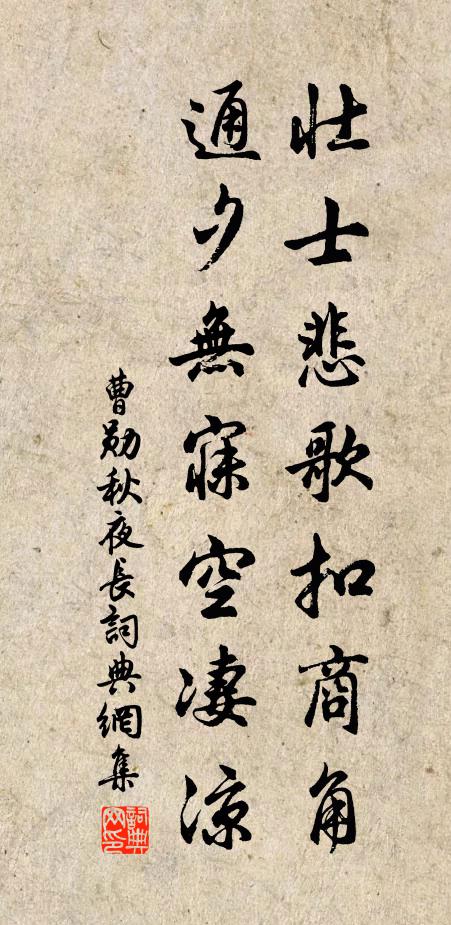 壮士悲歌扣商角
通夕無寐空凄涼
曹勛秋夜長詞典網集
詞典網印